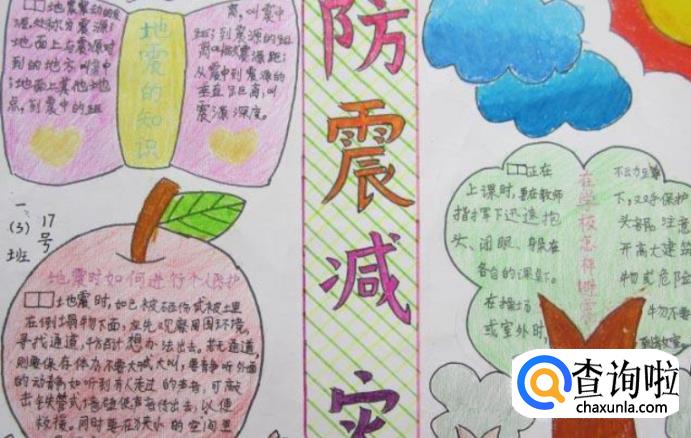 地震震动的发
源处称为震源;
地面上与震源对
到的地方叫震中
;地面上其他地
点,到震中的距
离,叫震中
距;到震源的距
离叫做震源距;
从震中到震源的
垂直距离,叫
震源深度。
地震的知识
防震减灾
一
(3)
班
17
号
地震时如何进行个人防护
地震时,如已被砸伤或被埋
在倒塌物下面,应先观察周围环境,
寻找通道,千方百计想办法出去。若无通道,
则要保存体力,不要大喊大叫,要静听外面
的动静,如听到有人走过的声音,可敲
击铁管或墙壁使声音传出去,以便
救援。同时要在狭小的空间里
在学校怎样避震
正在
上课时,要在教师
指挥下迅速抱
头、闭眼、躲在
各自的课桌下。
在操场
或室外时,
下,双手保护
头部,注意
开高大建筑
物或危险
物不要
教室。
查询啦
chaxunla.com